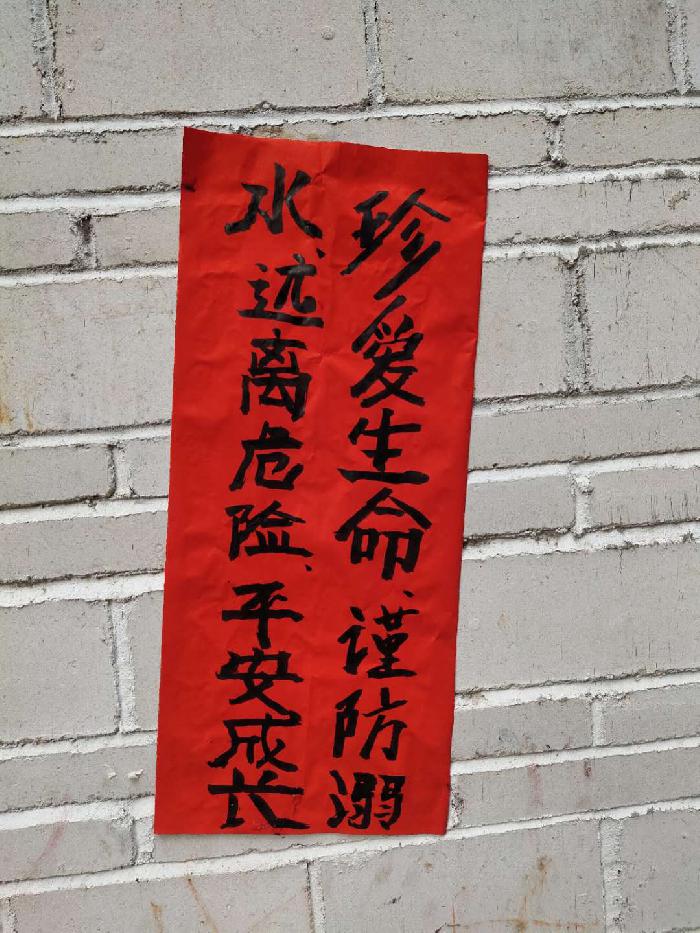 珍爱生命、谨防溺
水、远离危险、平安成长